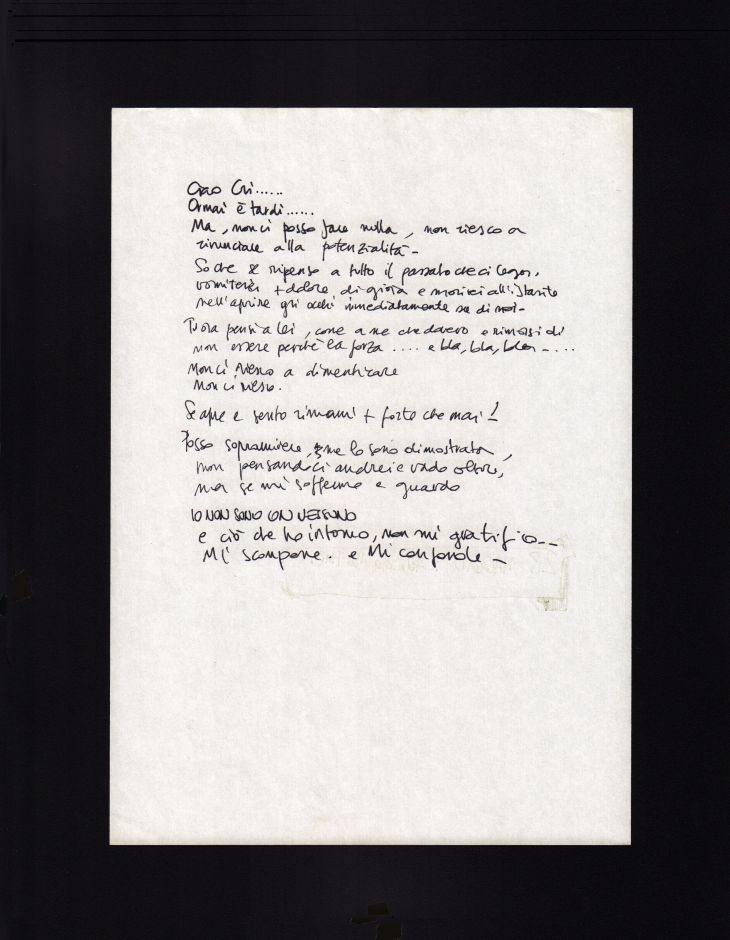 Ciao Cri......
Ormai è tardi......
Ma, non ci posso fare nulla, non riesco a
rinunciare alla potenzialità -
So che se ripenso a tutto il passato che ci lega,
vomiterei + dolore di gioia e morirei all'istante
nell'aprire gli occhi immediatamente su di noi -
Tu ora pensi a lei, come a me che davero e rimorsi di
non essere perchè la forza .... e bla, bla, bla - ....
Non ci riesco a dimenticare
Non ci riesco.
e sento + forte che mai!
Posso sopravvivere, me lo sono dimostrata,
non pensandoci andrei e vado oltre,
ma se mi soffermo e guardo
IO NON SONO CON NESSUNO
e ciò che ho intorno, non mi gratifica --
Mi scompone. e Mi confonde -